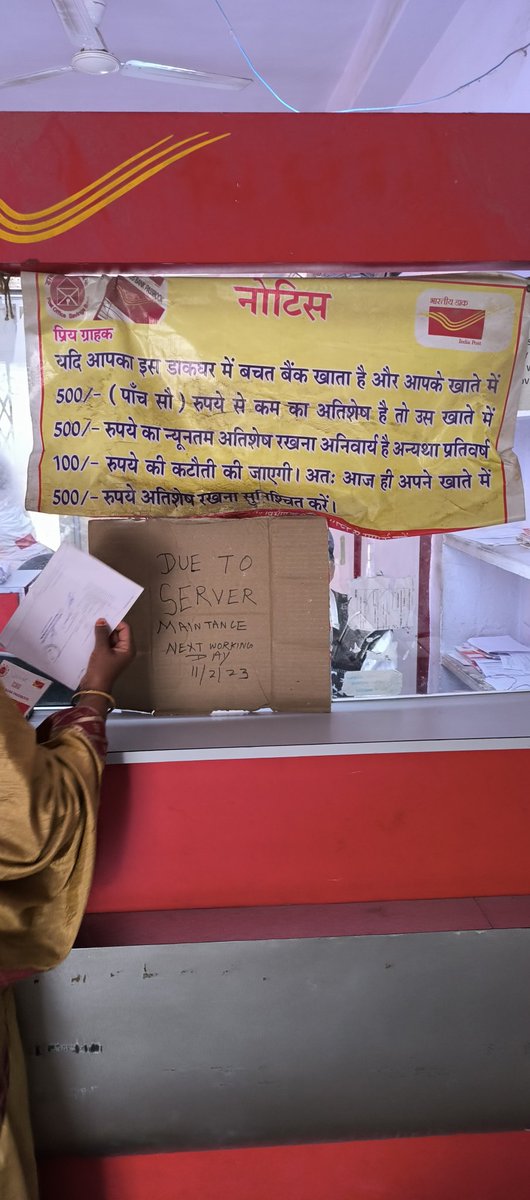 नोटिस
भारतीय डाक
India Post
प्रिय ग्राहक
यदि आपका इस डाकघर में बचत बैंक खाता है और आपके खाते में
500/- ( पाँच सौ ) रुपये से कम का अतिशेष है तो उस खाते में
500/- रुपये का न्यूनतम अतिशेष रखना अनिवार्य है अन्यथा प्रतिवर्ष
100/- रुपये की कटौती की जाएगी। अतः आज ही अपने खाते में
500/- रुपये अतिशेष रखना सुनिश्चित करें।
DUE TO
SERVER
MAINTANCE
NEXT WORKING
DAY
11/2/23